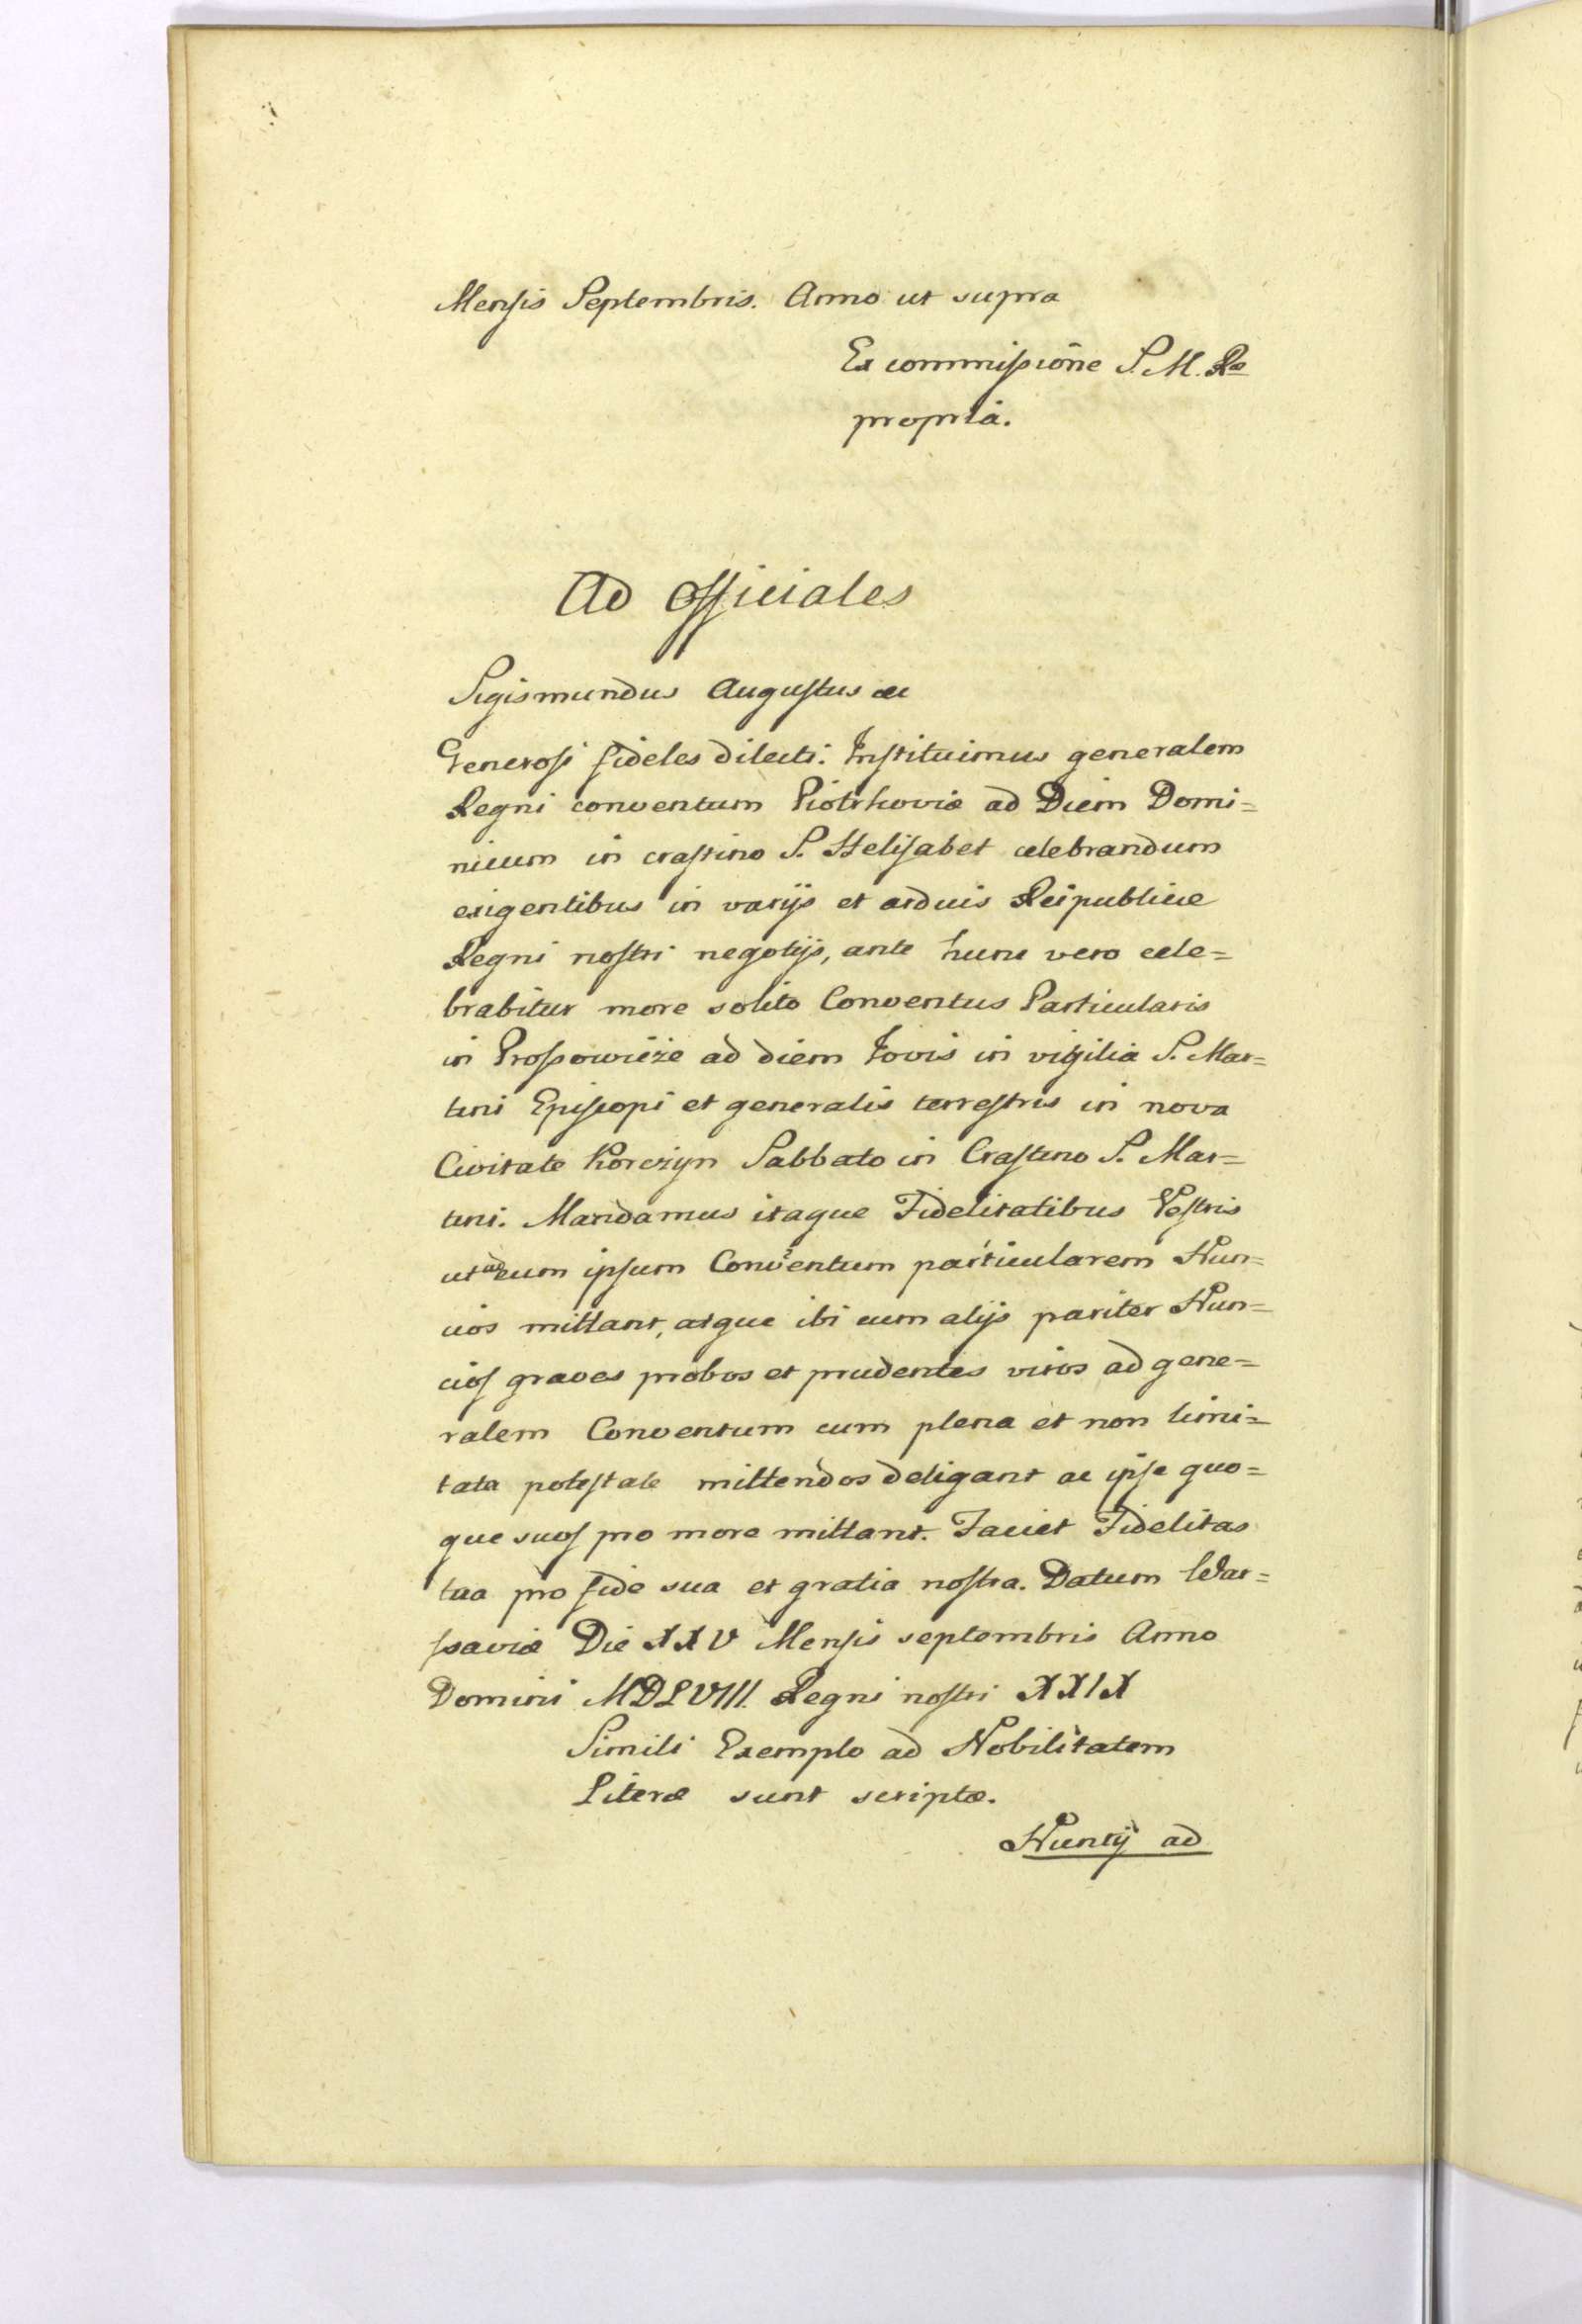 Mensis Septembris. Anno ut supra
Ex commissiõne S. M. Ræ
propriâ.
Ad officiales
Sigismundus Augustus &c
Generosi fideles dilecti. Instituimus generalem
Regni conventum Piotrkoviæ ad Diem Domi=
nicum in crastino S. Helisabet celebrandum
exigentibus in varijs et arduis Reipublicæ
Regni nostri negotijs, ante hunc vero cele=
brabitur more solito Conventus Particularis
in Prossowicze ad diem Jovis in vigilia S. Mar=
tini Episcopi et generalis terrestris in nova
Civitate Korczyn Sabbato in Crastino S. Mar=
tini. Mandamus itaque Fidelitatibus Vestris
ut ad eum ipsum Conventum particularem Nun=
cios mittant, atque ibi cum alijs pariter Nun=
cios graves probos et prudentes viros ad gene=
ralem Conventum cum plena et non limi=
tata potestate mittendos deligant ac ipse quo=
que suos pro more mittant. Faciet Fidelitas
tua pro fide sua et gratia nostra. Datum War=
ssaviæ Die XXV Mensis septembris Anno
Domini MDLVIII. Regni nostri XXIX
Simili Exemplo ad Nobilitatem
Literæ sunt scriptæ.
Nuncij ad